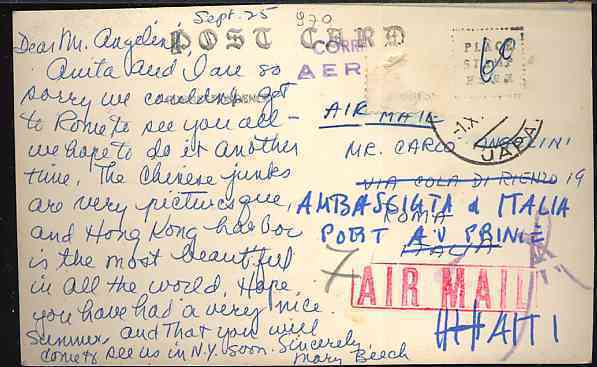 Sept. 25
970
POST CARD
Dear Mr. Angelini,
Anita and I are so
sorry we couldn't get
to Rome to see you all -
we hope to do it another
time. The Chinese junks
are very picturesque,
and Hong Kong harbor
is the most beautiful
in all the world. Hope
you have had a very nice
Summer, and that you will
come to see us in N.Y. soon. Sincerely,
Mary Beech
CORRE
AER
PLACE
STAMP
HERE
60
-1.X.
JAPA
AIR MAIL
MR. CARLO ANGELINI
VIA COLA DI RIENZO 19
ROMA
ITALIA
AMBASCIATA d ITALIA
PORT AU PRINCE
AIR MAIL
HAITI